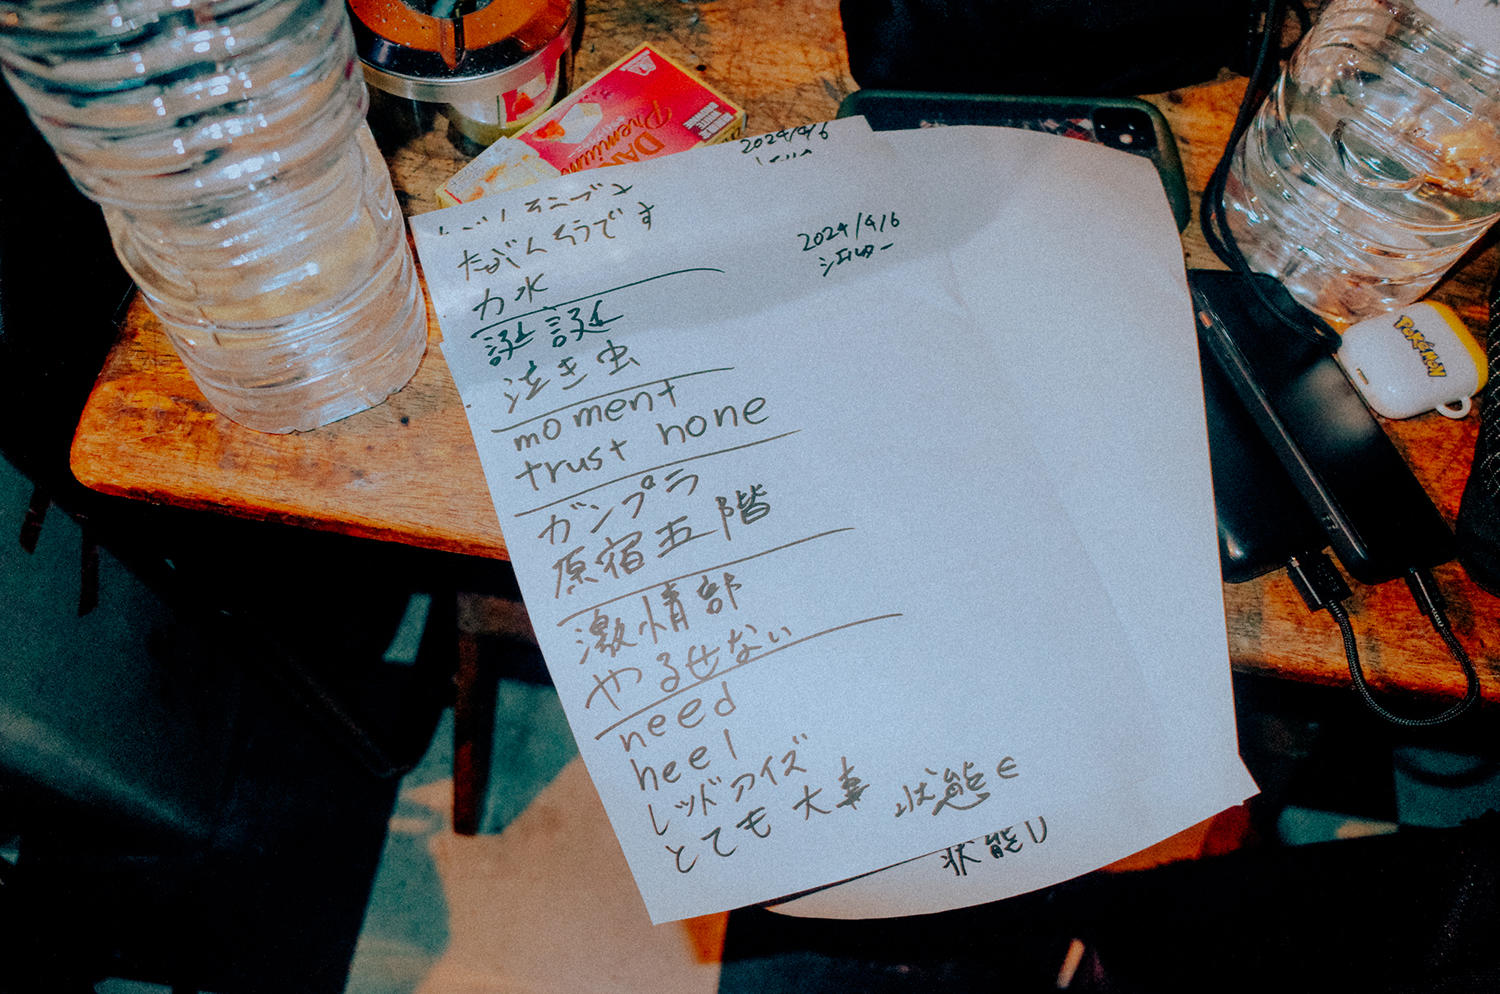 DARS
Premium
2024/4/6
2024/4/6
シェルター
たぶんそうです
力水
誕誕
泣き虫
moment
trust none
ガンプラ
原宿五階
激情部
やるせない
need
heel
レッドアイズ
とても大事 状態∈
状態り
POKéMON